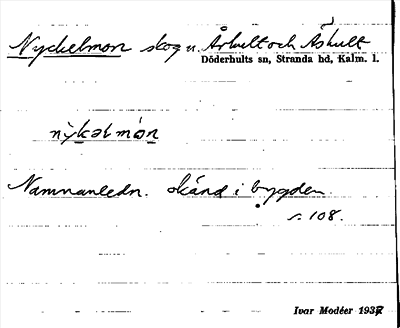 Nyckelmon skog u. Århult och Åshult
Döderhults sn, Stranda hd, Kalm. l.
nỳkəlmón
Namnanledn. okänd i bygden.
s. 108.
Ivar Modéer 1937